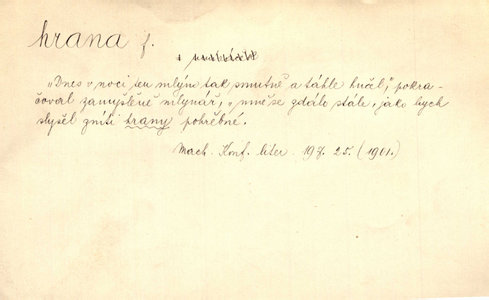 hrana f.
„Dnes v noci ten mlýn tak smutně a táhle hučel," pokra-
čoval zamyšleně mlynář, „mně se zdálo stále, jako bych
slyšel zníti hrany pohřební.
Mach. Konf. liter. 197. 25. (1901.)